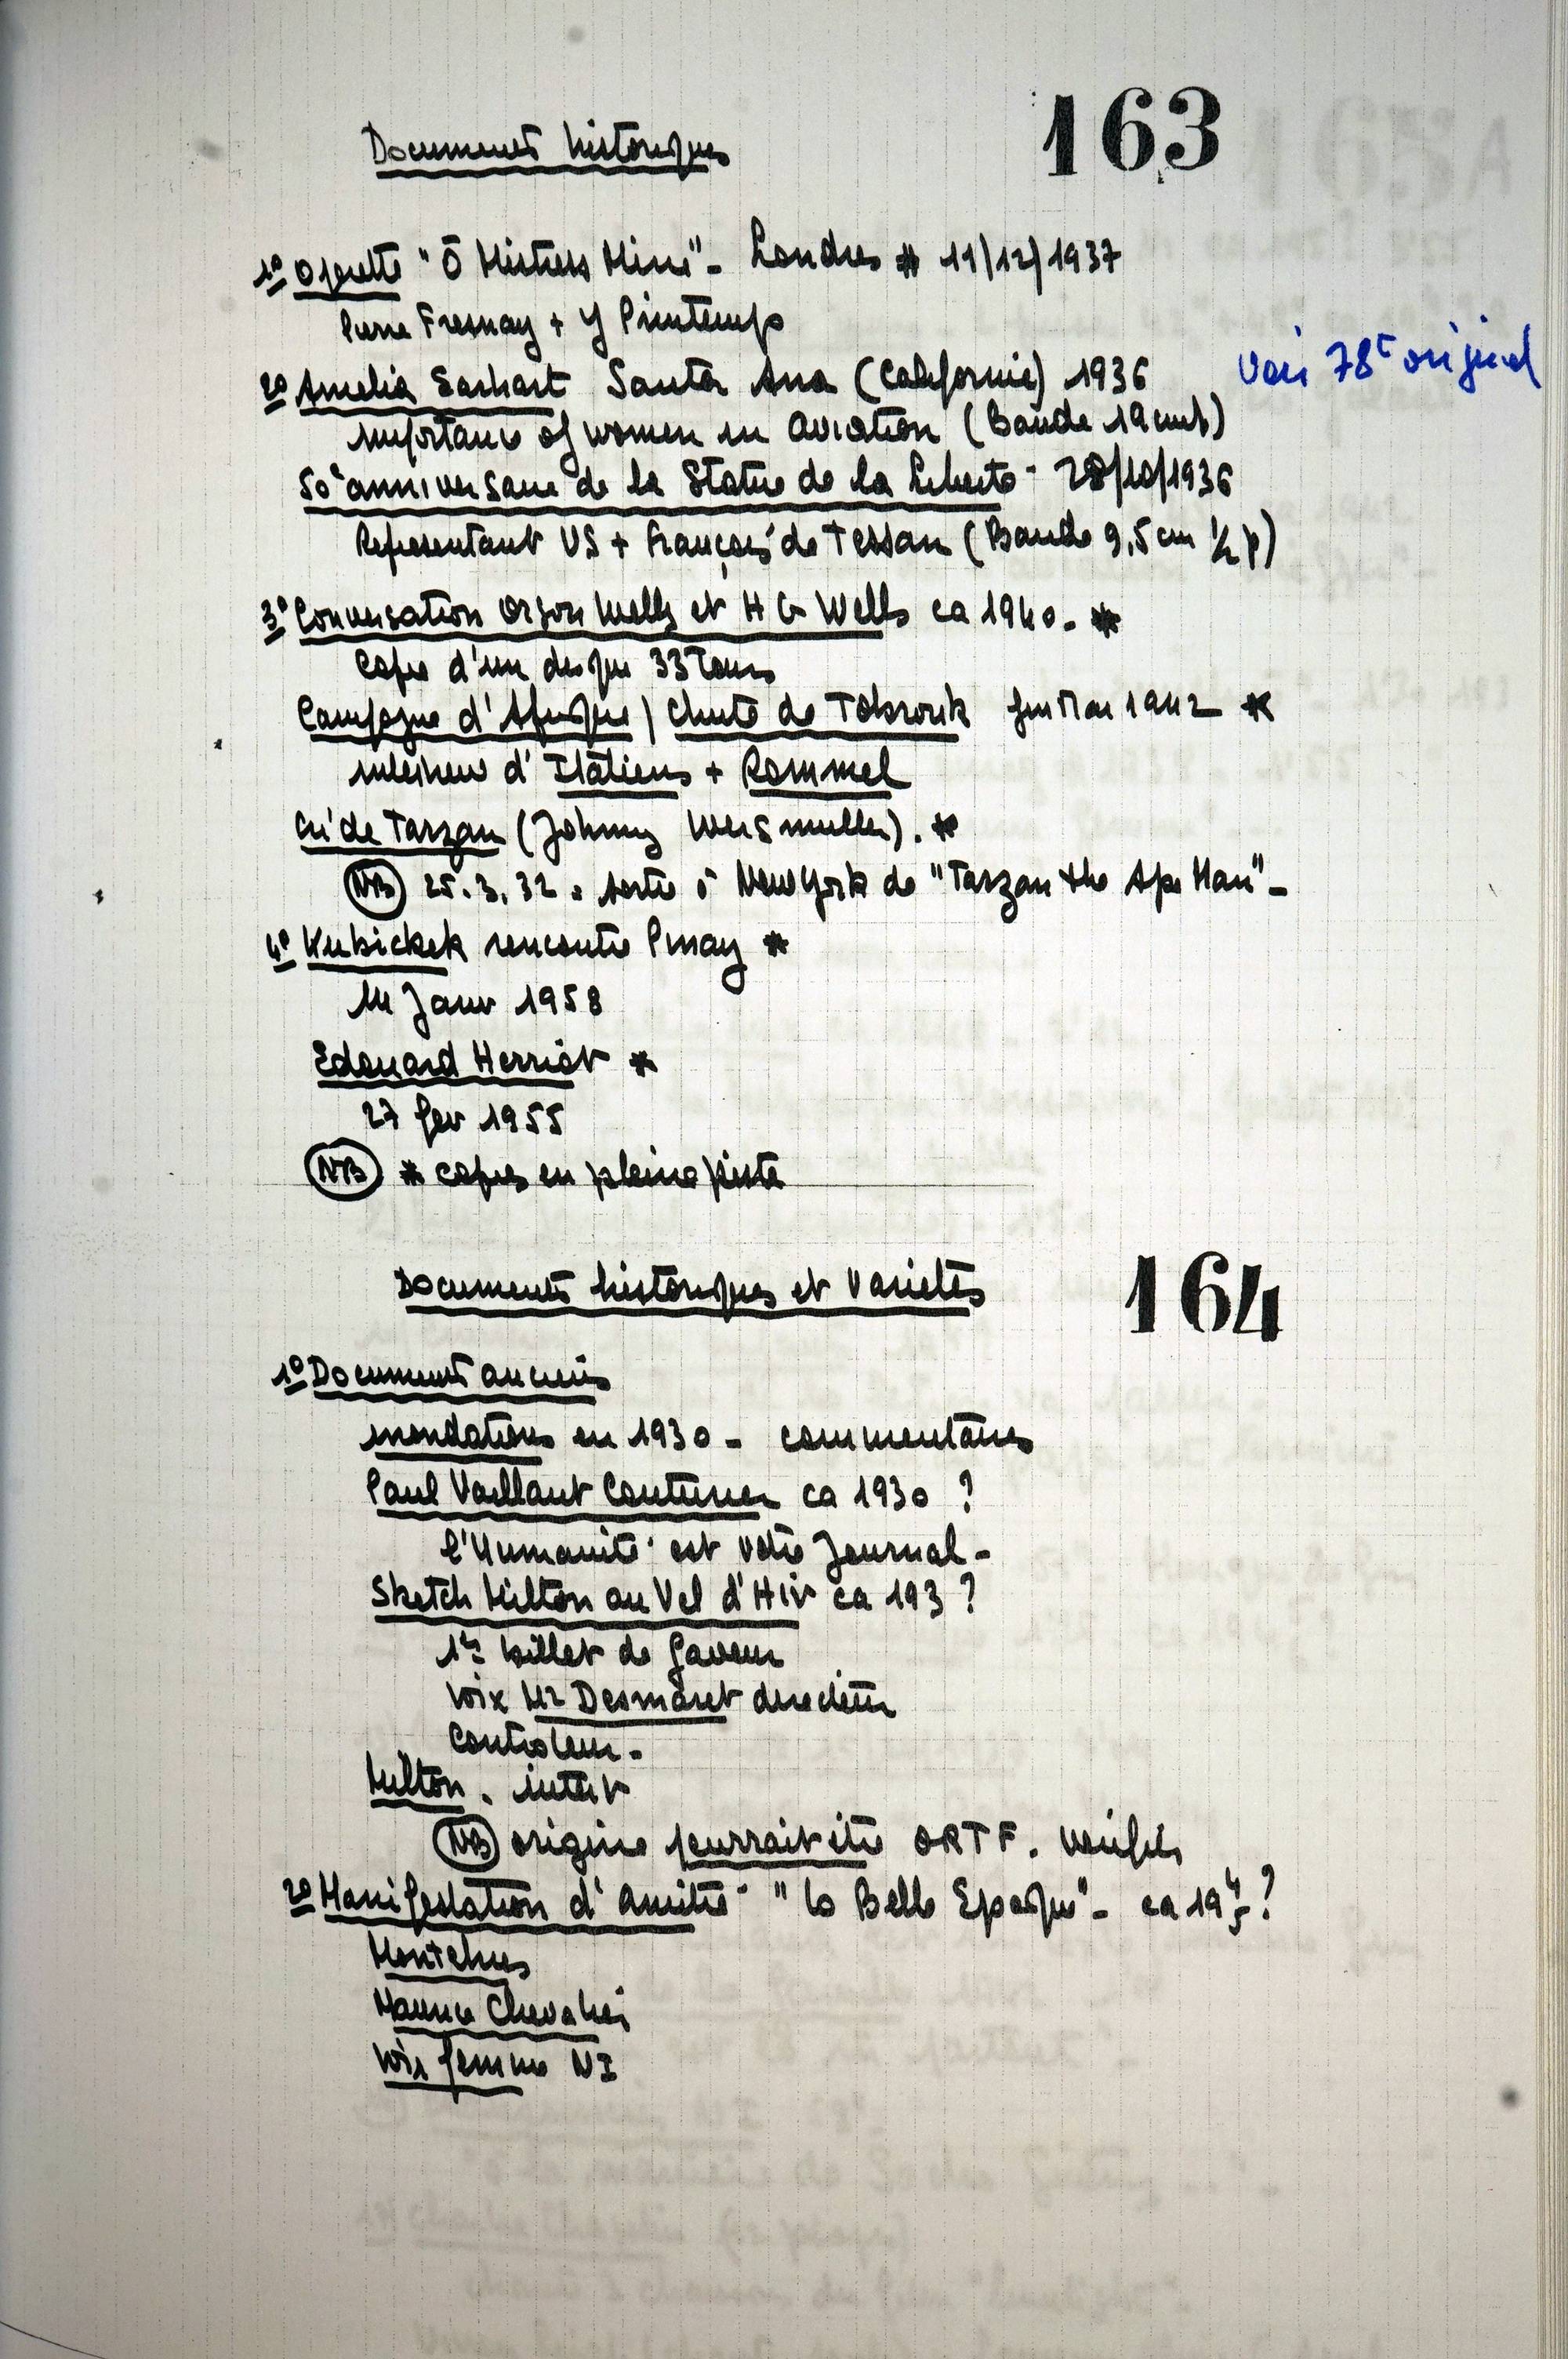 Documents historiques
163
1º Operette "Ô Mistress Mine" - Londres * 11/12/1937
Pierre Fresnay + Y Printemps
2º Amelia Earhart Santa Ana (Californie) 1936
voir 78t original
importance of women in aviation (Bande 19 cm)
50e anniversaire de la Statue de la Liberté - 28/10/1936
Representant US + François de Tessan (Bande 9,5 cm ½ p)
3º Conversation Orson Wells et H G Wells ca 1940 - *
Copie d'un disque 33 Tours
Campagne d'Afrique / chute de Tobrouk 1942 *
interview d'Italiens + Rommel
Cri de Tarzan (Johnny Weismuller). *
NB 25.3.32. sortie à New York de "Tarzan the Ape Man" -
4º Kubichek rencontre Pinay *
14 Janv 1958
Edouard Herriot *
27 fev 1955
NB * copies en pleine piste
Documents historiques et Varietés
164
1º Documents anciens
inondations en 1930 - commentaires
Paul Vaillant Couturier ca 1930 ?
l'Humanité est votre Journal -
Sketch Milton au Vel d'Hiv ca 193 ?
1er billet de faveur
Voix Mr Desmaret directeur
Controleur -
Milton. intert
NB origine pourrait être ORTF. verifier
2º Manifestation d'amitié "la Belle Epoque" - ca 194/5 ?
Montehus
Maurice Chevalier
Voix femme NI